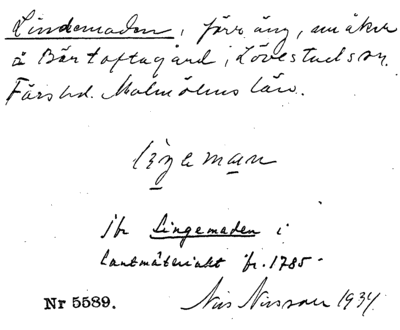 Lindemaden, förr äng, nu åker
å Bärtoftagård i Lövestads sn.
Färs hd. Malmöhus län.
jfr Lingemaden i
Lantmäteriakt fr. 1785.
Nr 5589. Nils Nilsson 1934